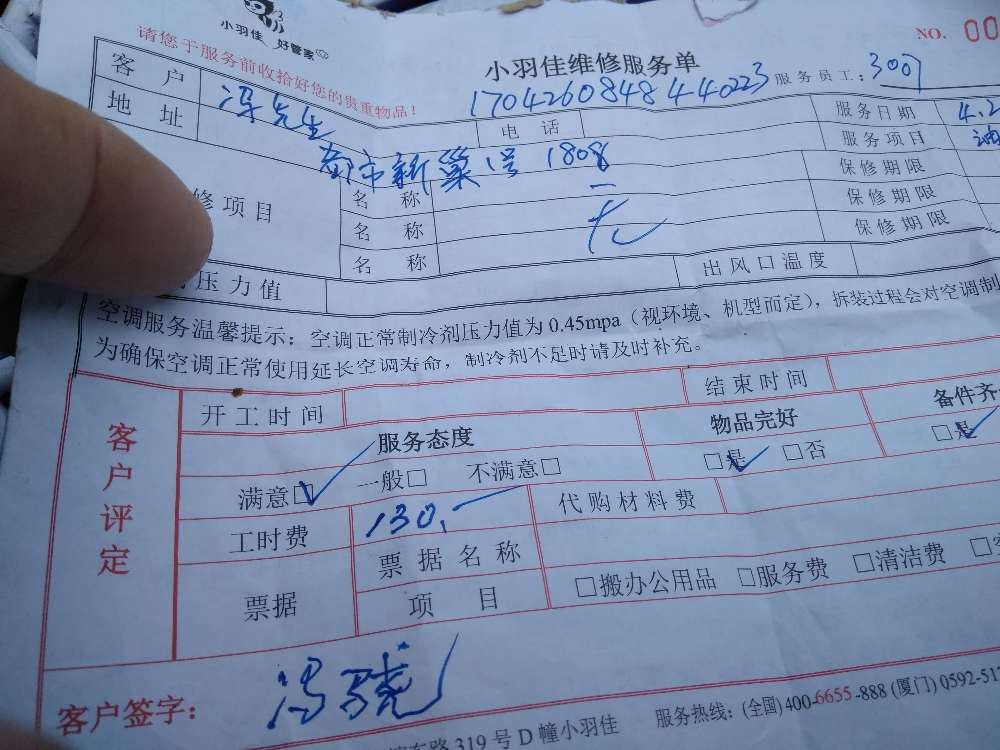 小羽佳 好管家
NO. 00
请您于服务前收拾好您的贵重物品！
小羽佳维修服务单
170426084844 0223
服务员工：3007
客户 冯先生
电话
服务日期 4.2
地址 都市新巢1号 1808
服务项目 油
修项目
名称
保修期限
名称
保修期限
名称
保修期限
压力值
出风口温度
空调服务温馨提示：空调正常制冷剂压力值为0.45mpa（视环境、机型而定），拆装过程会对空调制
为确保空调正常使用延长空调寿命，制冷剂不足时请及时补充。
客户评定
开工时间
结束时间
服务态度
物品完好
备件齐
满意□ 一般□ 不满意□
□是 □否
□是
工时费 130.-
代购材料费
票据
票据名称
项目
□搬办公用品 □服务费 □清洁费 □
客户签字：冯骁
路319号D幢小羽佳
服务热线：(全国)400-6655-888 (厦门) 0592-51